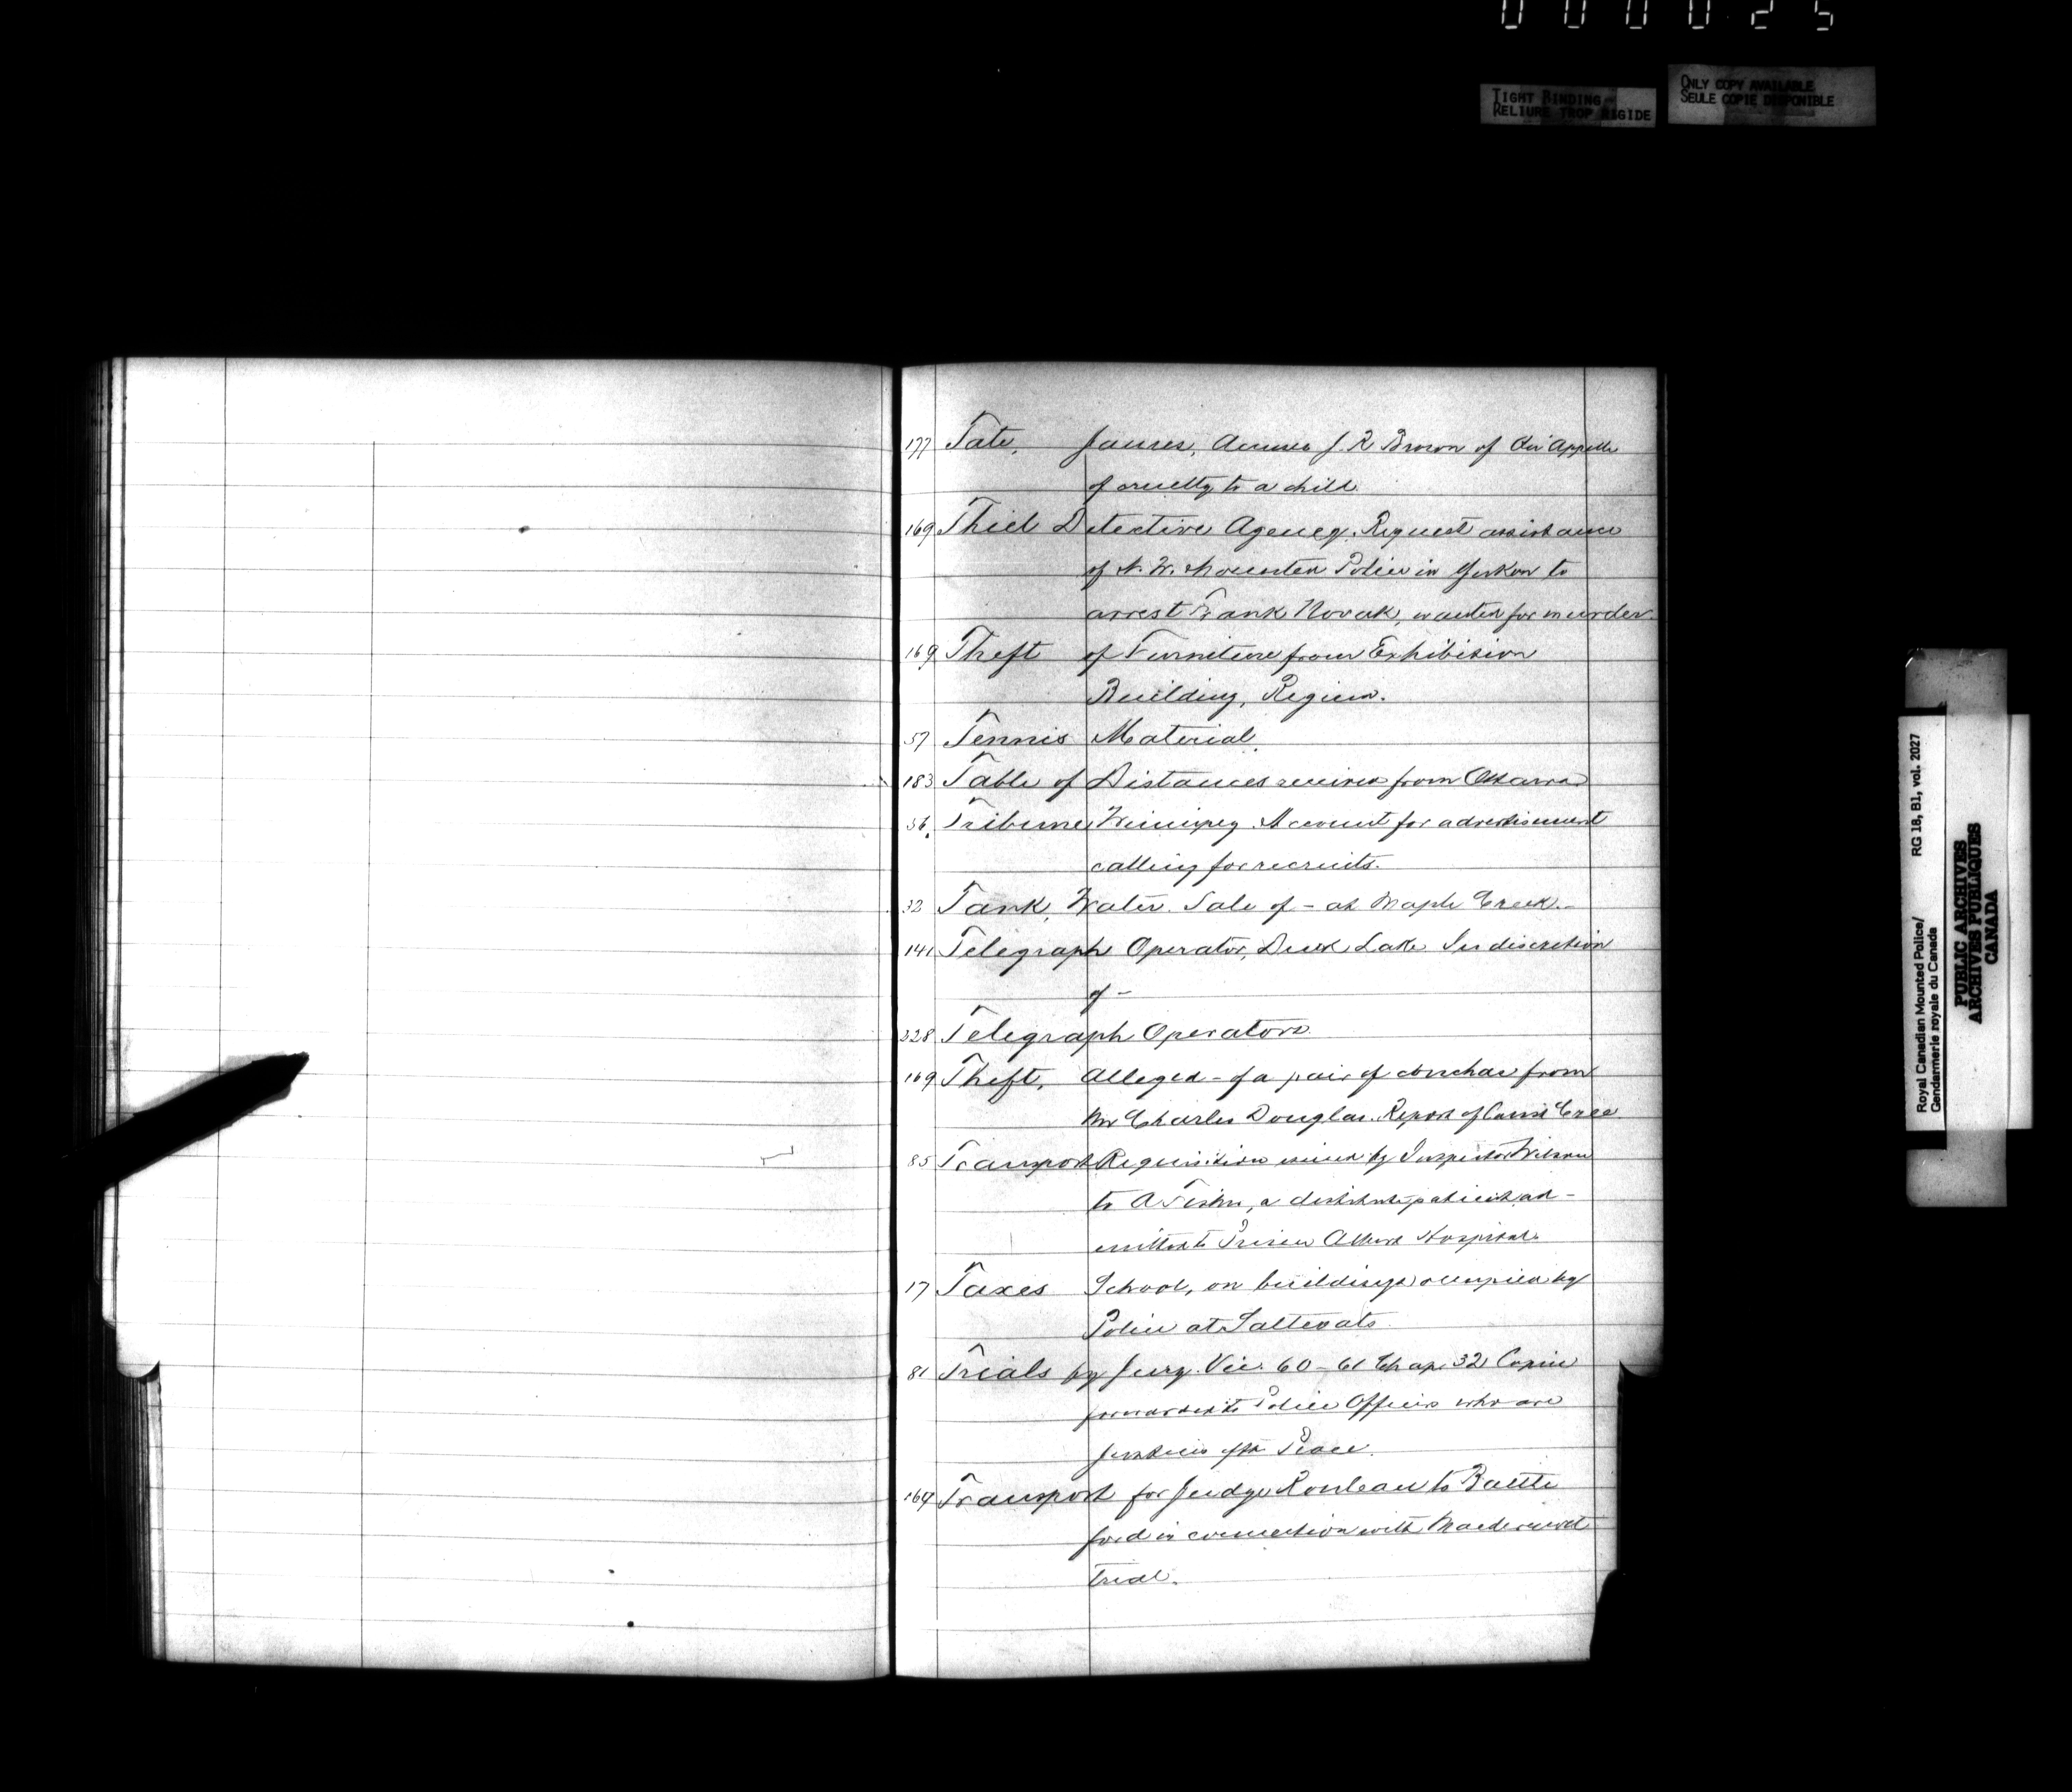 000025
TIGHT BINDING
RELIURE TROP RIGIDE
ONLY COPY AVAILABLE
SEULE COPIE DISPONIBLE
177 Tate, James, Accuses J. R Brown of Qu'Appelle
of cruelty to a child
169 Thiel Detective Agency. Request assistance
of N. W. Mounted Police in Yukon to
arrest Frank Novak, wanted for murder.
169 Theft of Furniture from Exhibition
Building, Regina.
57 Tennis Material.
183 Table of Distances received from Ottawa
36. Tribune Winnipeg. Account for advertisement
calling for recruits.
32 Tank, Water. Sale of - at Maple Creek.-
141 Telegraph Operator, Duck Lake. Indiscretion
of -
228 Telegraph Operators.
169 Theft, Alleged - of a pair of from
Mr Charles Douglas. Report of
85 Transport Requisition issued by Inspector Wilson
to A , a destitute patient ad-
mitted to Prince Albert Hospital.
17 Taxes School, on buildings occupied by
Police at Saltcoats.
81 Trials by Jury. Vic. 60-61 Chap. 32 Copies
forwarded to Police Officers who are
Justices of the Peace.
164 Transport for Judge Rouleau to Battle
ford in connection with
Trial.
Royal Canadian Mounted Police/
Gendarmerie royale du Canada
RG 18, B1, vol. 2027
PUBLIC ARCHIVES
ARCHIVES PUBLIQUES
CANADA